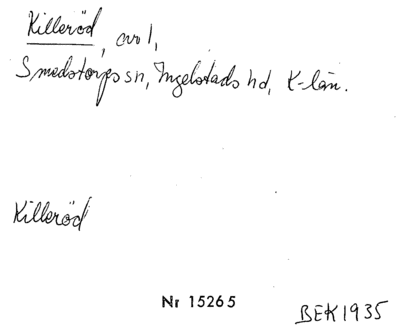 Killeröd, nr 1,
Smedstorps sn, Ingelstads hd, K-län.
Killeröd
Nr 15265
BEK 1935